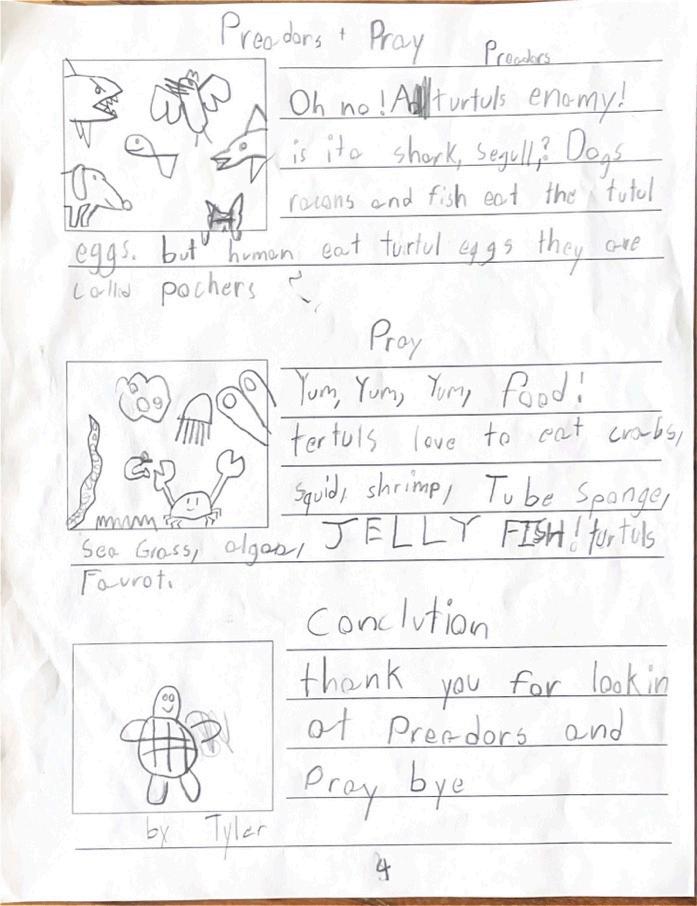 Preadors + Pray
Preadors
Oh no! A turtuls enemy!
is it a shark, segull,? Dogs
racons and fish eat the tutul
eggs. but human eat turtul eggs they are
calld pochers
Pray
Yum, Yum, Yum, food!
tertuls love to eat crabs,
squid, shrimp, Tube sponge,
Sea Grass, algae, JELLY FISH! turtuls
Favrot.
Conclution
thank you for lookin
at Preadors and
Pray bye
by Tyler
4